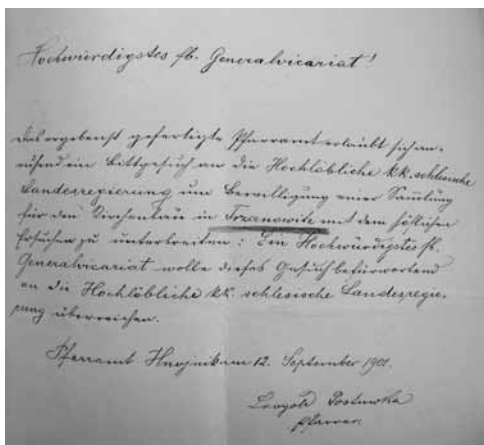 Hochwürdigstes fb. Generalvicariat!
Das ergebenst gefertigte Pfarramt erlaubt sich an-
ruhend ein Bittgesuch an die Hochlöbliche kk. schlesische
Landesregierung um Bewilligung einer Sammlung
für den Kirchenbau in Trzanowitz mit dem höflichen
Ersuchen zu unterbreiten: Ein Hochwürdigstes fb.
Generalvicariat wolle dieses Gesuch befürwortend
an die Hochlöbliche kk. schlesische Landesregie-
rung überreichen.
Pfarramt Hnojnik am 12. September 1901.
Leopold
Pfarrer